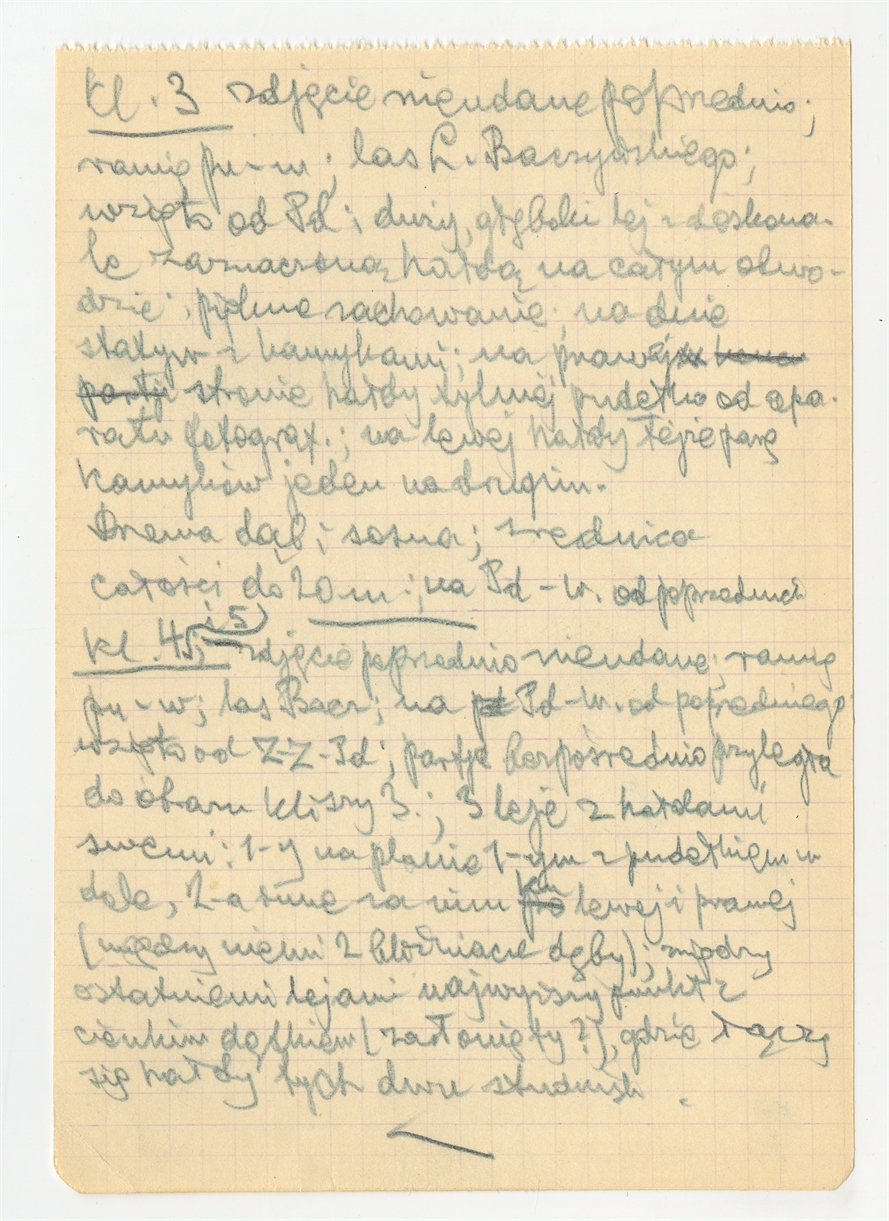 Kl. 3 zdjęcie nieudane poprzednio;
ramię pn-w; las L. Baczyńskiego;
wzięto od Pd; duży, głęboki lej z doskona-
le zaznaczoną hałdą na całym obwo-
dzie; piękne zachowanie; na dnie
statyw z kamykami; na prawej
stronie hałdy tylnej pudełko od apa-
ratu fotograf.; na lewej hałdy tejże parę
kamyków jeden na drugim.
Drzewa dąb i sosna; średnica
całości do 20 m; na Pd-w. od poprzednich
Kl. 4 i 5) zdjęcie poprzednio nieudane; ramię
pn-w; las Bacz; na Pd-w. od poprzedniego
wzięto od Z-Z-Pd; partje bezpośrednio przyległa
do obszaru kliszy 3.; 3 leje z hałdami
swemi: 1-y na planie 1-ym z pudełkiem w
dole, 2-a inne za nim ku lewej i prawej
(między niemi 2 bliźniacze dęby); między
ostatniemi lejami najwyższy punkt z
cienkim dąbkiem (zasłonięty?), gdzie łączy
się hałdy tych dwu studzisk.